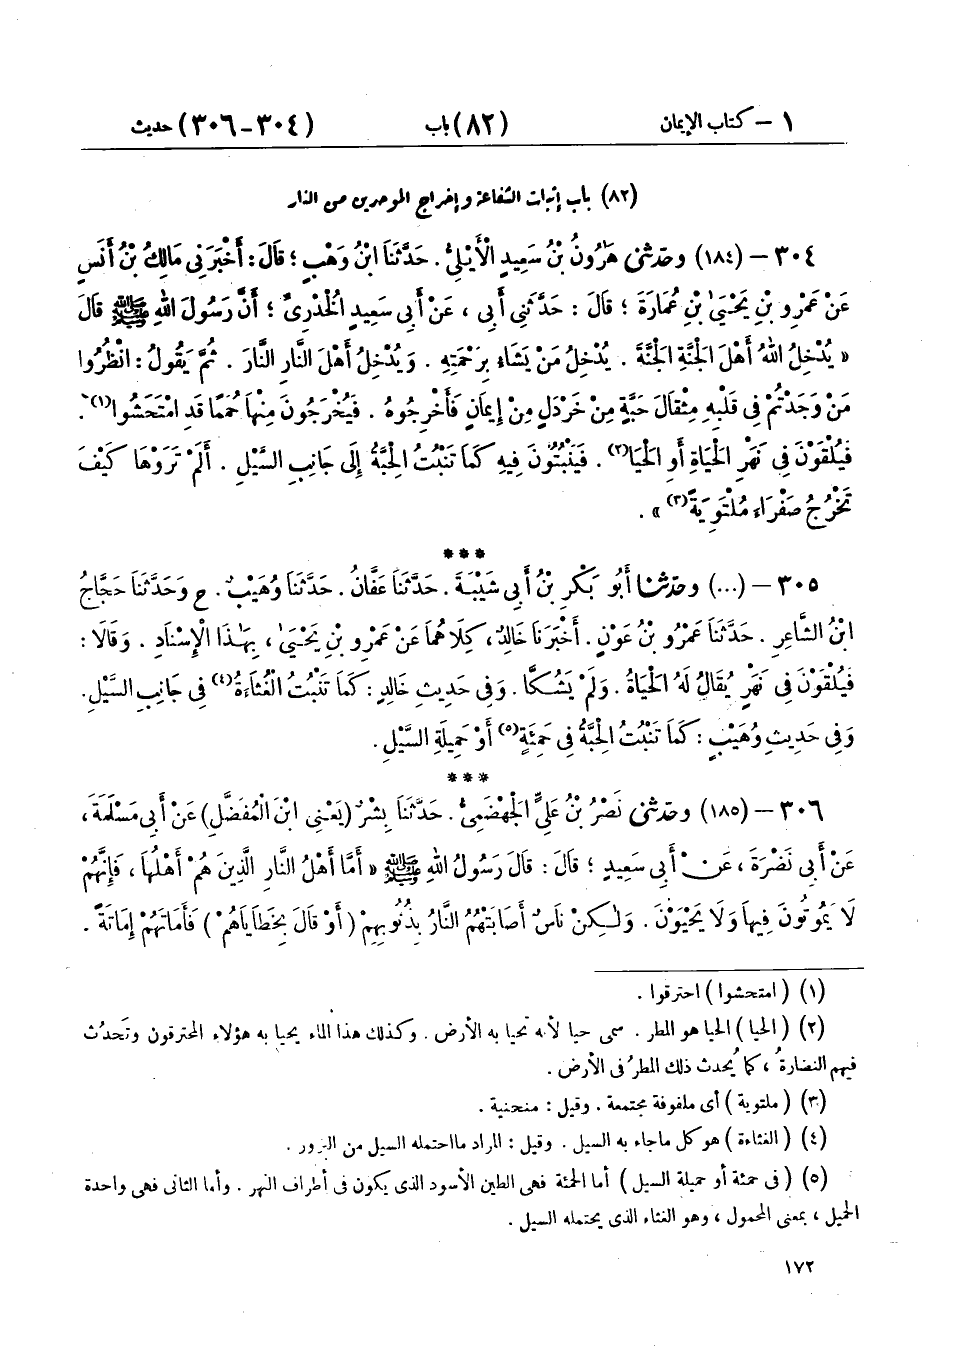 ١ – كتاب الإيمان (٨٢) باب (٣٠٤-٣٠٦) حديث
(٨٢) باب إثبات الشفاعة وإخراج الموحدين من النار
٣٠٤ – (١٨٤) وحدثني هَرُونُ بْنُ سَعِيدٍ الْأَيْلِيُّ . حَدَّثَنَا ابْنُ وَهْبٍ ؛ قَالَ : أَخْبَرَنِي مَالِكُ بْنُ أَنَسٍ
عَنْ عَمْرِو بْنِ يَحْيَىٰ بْنِ عُمَارَةَ ؛ قَالَ : حَدَّثَنِي أَبِي ، عَنْ أَبِي سَعِيدٍ الْخُدْرِيِّ ؛ أَنَّ رَسُولَ اللهِ ﷺ قَالَ
« يُدْخِلُ اللهُ أَهْلَ الْجَنَّةِ الْجَنَّةَ . يُدْخِلُ مَنْ يَشَاءُ بِرَحْمَتِهِ . وَيُدْخِلُ أَهْلَ النَّارِ النَّارَ . ثُمَّ يَقُولُ : انْظُرُوا
مَنْ وَجَدْتُمْ فِي قَلْبِهِ مِثْقَالَ حَبَّةٍ مِنْ خَرْدَلٍ مِنْ إِيمَانٍ فَأَخْرِجُوهُ . فَيُخْرَجُونَ مِنْهَا حُمَمًا قَدِ امْتَحَشُوا(١) .
فَيُلْقَوْنَ فِي نَهْرِ الْحَيَاةِ أَوِ الْحَيَا(٢) . فَيَنْبُتُونَ فِيهِ كَمَا تَنْبُتُ الْحِبَّةُ إِلَى جَانِبِ السَّيْلِ . أَلَمْ تَرَوْهَا كَيْفَ
تَخْرُجُ صَفْرَاءَ مُلْتَوِيَةً(٣) » .
***
٣٠٥ – (...) وحدثنا أَبُو بَكْرِ بْنُ أَبِي شَيْبَةَ . حَدَّثَنَا عَفَّانُ . حَدَّثَنَا وُهَيْبٌ . ح وَحَدَّثَنَا حَجَّاجُ
ابْنُ الشَّاعِرِ . حَدَّثَنَا عَمْرُو بْنُ عَوْنٍ . أَخْبَرَنَا خَالِدٌ ، كِلَاهُمَا عَنْ عَمْرِو بْنِ يَحْيَىٰ ، بِهَٰذَا الْإِسْنَادِ . وَقَالَا :
فَيُلْقَوْنَ فِي نَهْرٍ يُقَالُ لَهُ الْحَيَاةُ . وَلَمْ يَشُكَّا . وَفِي حَدِيثِ خَالِدٍ : كَمَا تَنْبُتُ الْغُثَاءَةُ(٤) فِي جَانِبِ السَّيْلِ .
وَفِي حَدِيثِ وُهَيْبٍ : كَمَا تَنْبُتُ الْحِبَّةُ فِي حَمِئَةٍ(٥) أَوْ حَمِيلَةِ السَّيْلِ .
***
٣٠٦ – (١٨٥) وحدثني نَصْرُ بْنُ عَلِيٍّ الْجَهْضَمِيُّ . حَدَّثَنَا بِشْرٌ (يَعْنِي ابْنَ الْمُفَضَّلِ) عَنْ أَبِي مَسْلَمَةَ ،
عَنْ أَبِي نَضْرَةَ ، عَنْ أَبِي سَعِيدٍ ؛ قَالَ : قَالَ رَسُولُ اللهِ ﷺ « أَمَّا أَهْلُ النَّارِ الَّذِينَ هُمْ أَهْلُهَا ، فَإِنَّهُمْ
لَا يَمُوتُونَ فِيهَا وَلَا يَحْيَوْنَ . وَلَٰكِنْ نَاسٌ أَصَابَتْهُمُ النَّارُ بِذُنُوبِهِمْ ( أَوْ قَالَ بِخَطَايَاهُمْ ) فَأَمَاتَهُمْ إِمَاتَةً .
(١) ( امتحشوا ) احترقوا .
(٢) ( الحيا ) الحيا هو المطر . سمى حيا لأنه تحيا به الأرض . وكذلك هذا الماء يحيا به هؤلاء المحترقون وتَحدُث
فيهم النضارةُ ، كما يُحدث ذلك المطرُ فى الأرض .
(٣) ( ملتوية ) أى ملفوفة مجتمعة . وقيل : منحنية .
(٤) ( الغثاءة ) هو كل ما جاء به السيل . وقيل : المراد ما احتمله السيل من البزور .
(٥) ( فى حمئة أو حميلة السيل ) أما الحمئة فهى الطين الأسود الذى يكون فى أطراف النهر . وأما الثانى فهى واحدة
الحميل ، بمعنى المحمول ، وهو الغثاء الذى يحتمله السيل .
١٧٢